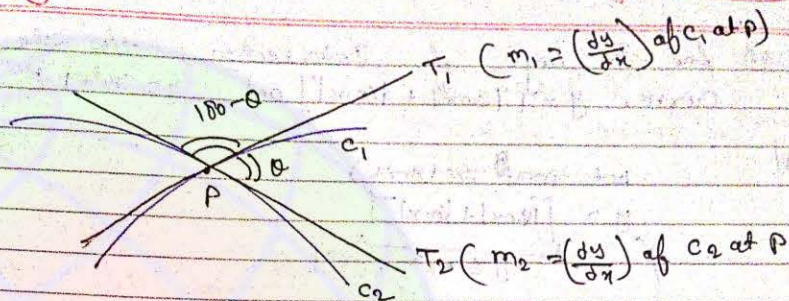 T₁ ( m₁ = (dy/dx) of C₁ at P)
180-θ
C₁
θ
P
T₂ ( m₂ = (dy/dx) of C₂ at P
C₂